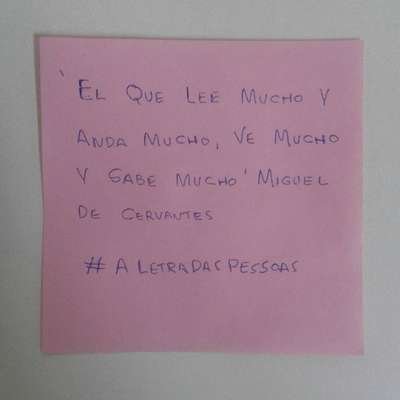 'El Que Lee Mucho y
Anda Mucho, Ve Mucho
y Sabe Mucho' Miguel
de Cervantes
# A LetraDasPessoas